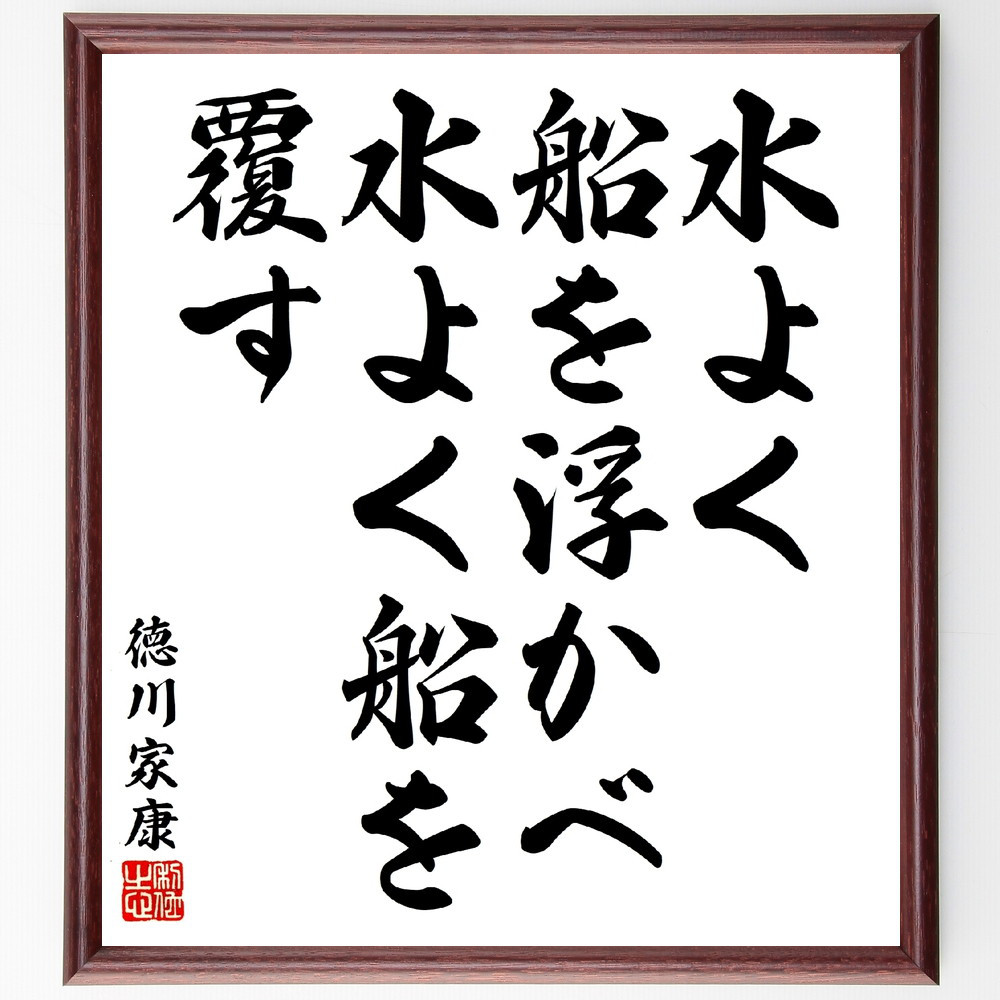 水よく
船を浮かべ
水よく船を
覆す
徳川家康